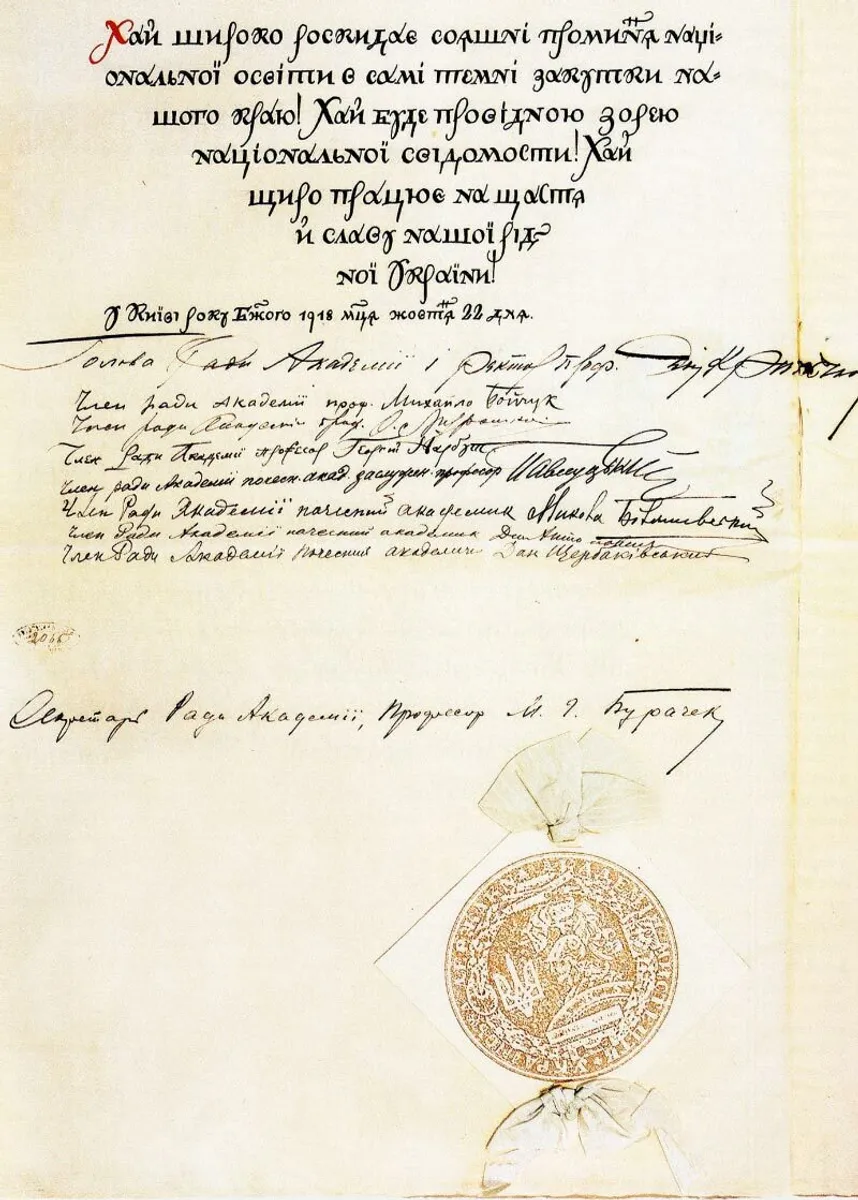 Хай широко роскидає сояшні проміння наці-
ональної освіти в самі темні закутки на-
шого краю! Хай буде провідною зорею
національної свідомости! Хай
щиро працює на щастя
й славу нашої рід-
ної України!
У Київі року Бжого 1918 мця жовтня 22 дня.
Голова Ради Академії і ректор проф.
Член ради Академії проф. Михайло Бойчук
Член ради Академії проф.
Член Ради Академії професор Георгій Нарбут
Член ради Академії почесн. акад. заслужен. професор
Член Ради Академії почесний академик Микола Біляшевський
Член Ради Академії почесний академик
Член Ради Академії почесний академик Дан Щербаківський
2066
Секретарь Ради Академії, Професор М. Г. Бурачек